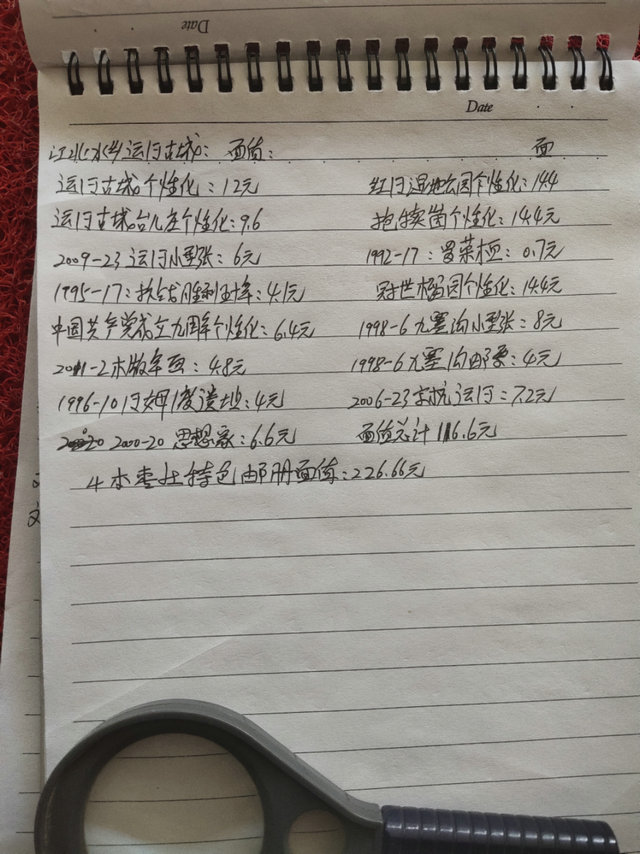 Date
Date
江北水乡运河古城: 面值: 面
运河古城个性化: 12元 红河湿地公园个性化: 14.4
运河古城台儿庄个性化: 9.6 抱犊崮个性化: 14.4元
2009-23 运河小型张: 6元 1992-17: 冒菜 0.7元
1995-17: 抗战胜利 4.1元 冠世榴园个性化: 14.4元
中国共产党成立九周年个性化: 6.4元 1998-6 九寨沟小型张: 8元
2011-2 木版年画: 4.8元 1998-6 九寨沟邮票: 4元
1996-10 河姆渡遗址: 4元 2006-23 京杭运河: 7.2元
2000-20 思想家: 6.6元 面值总计 116.6元
4本枣庄特色邮册面值: 226.66元